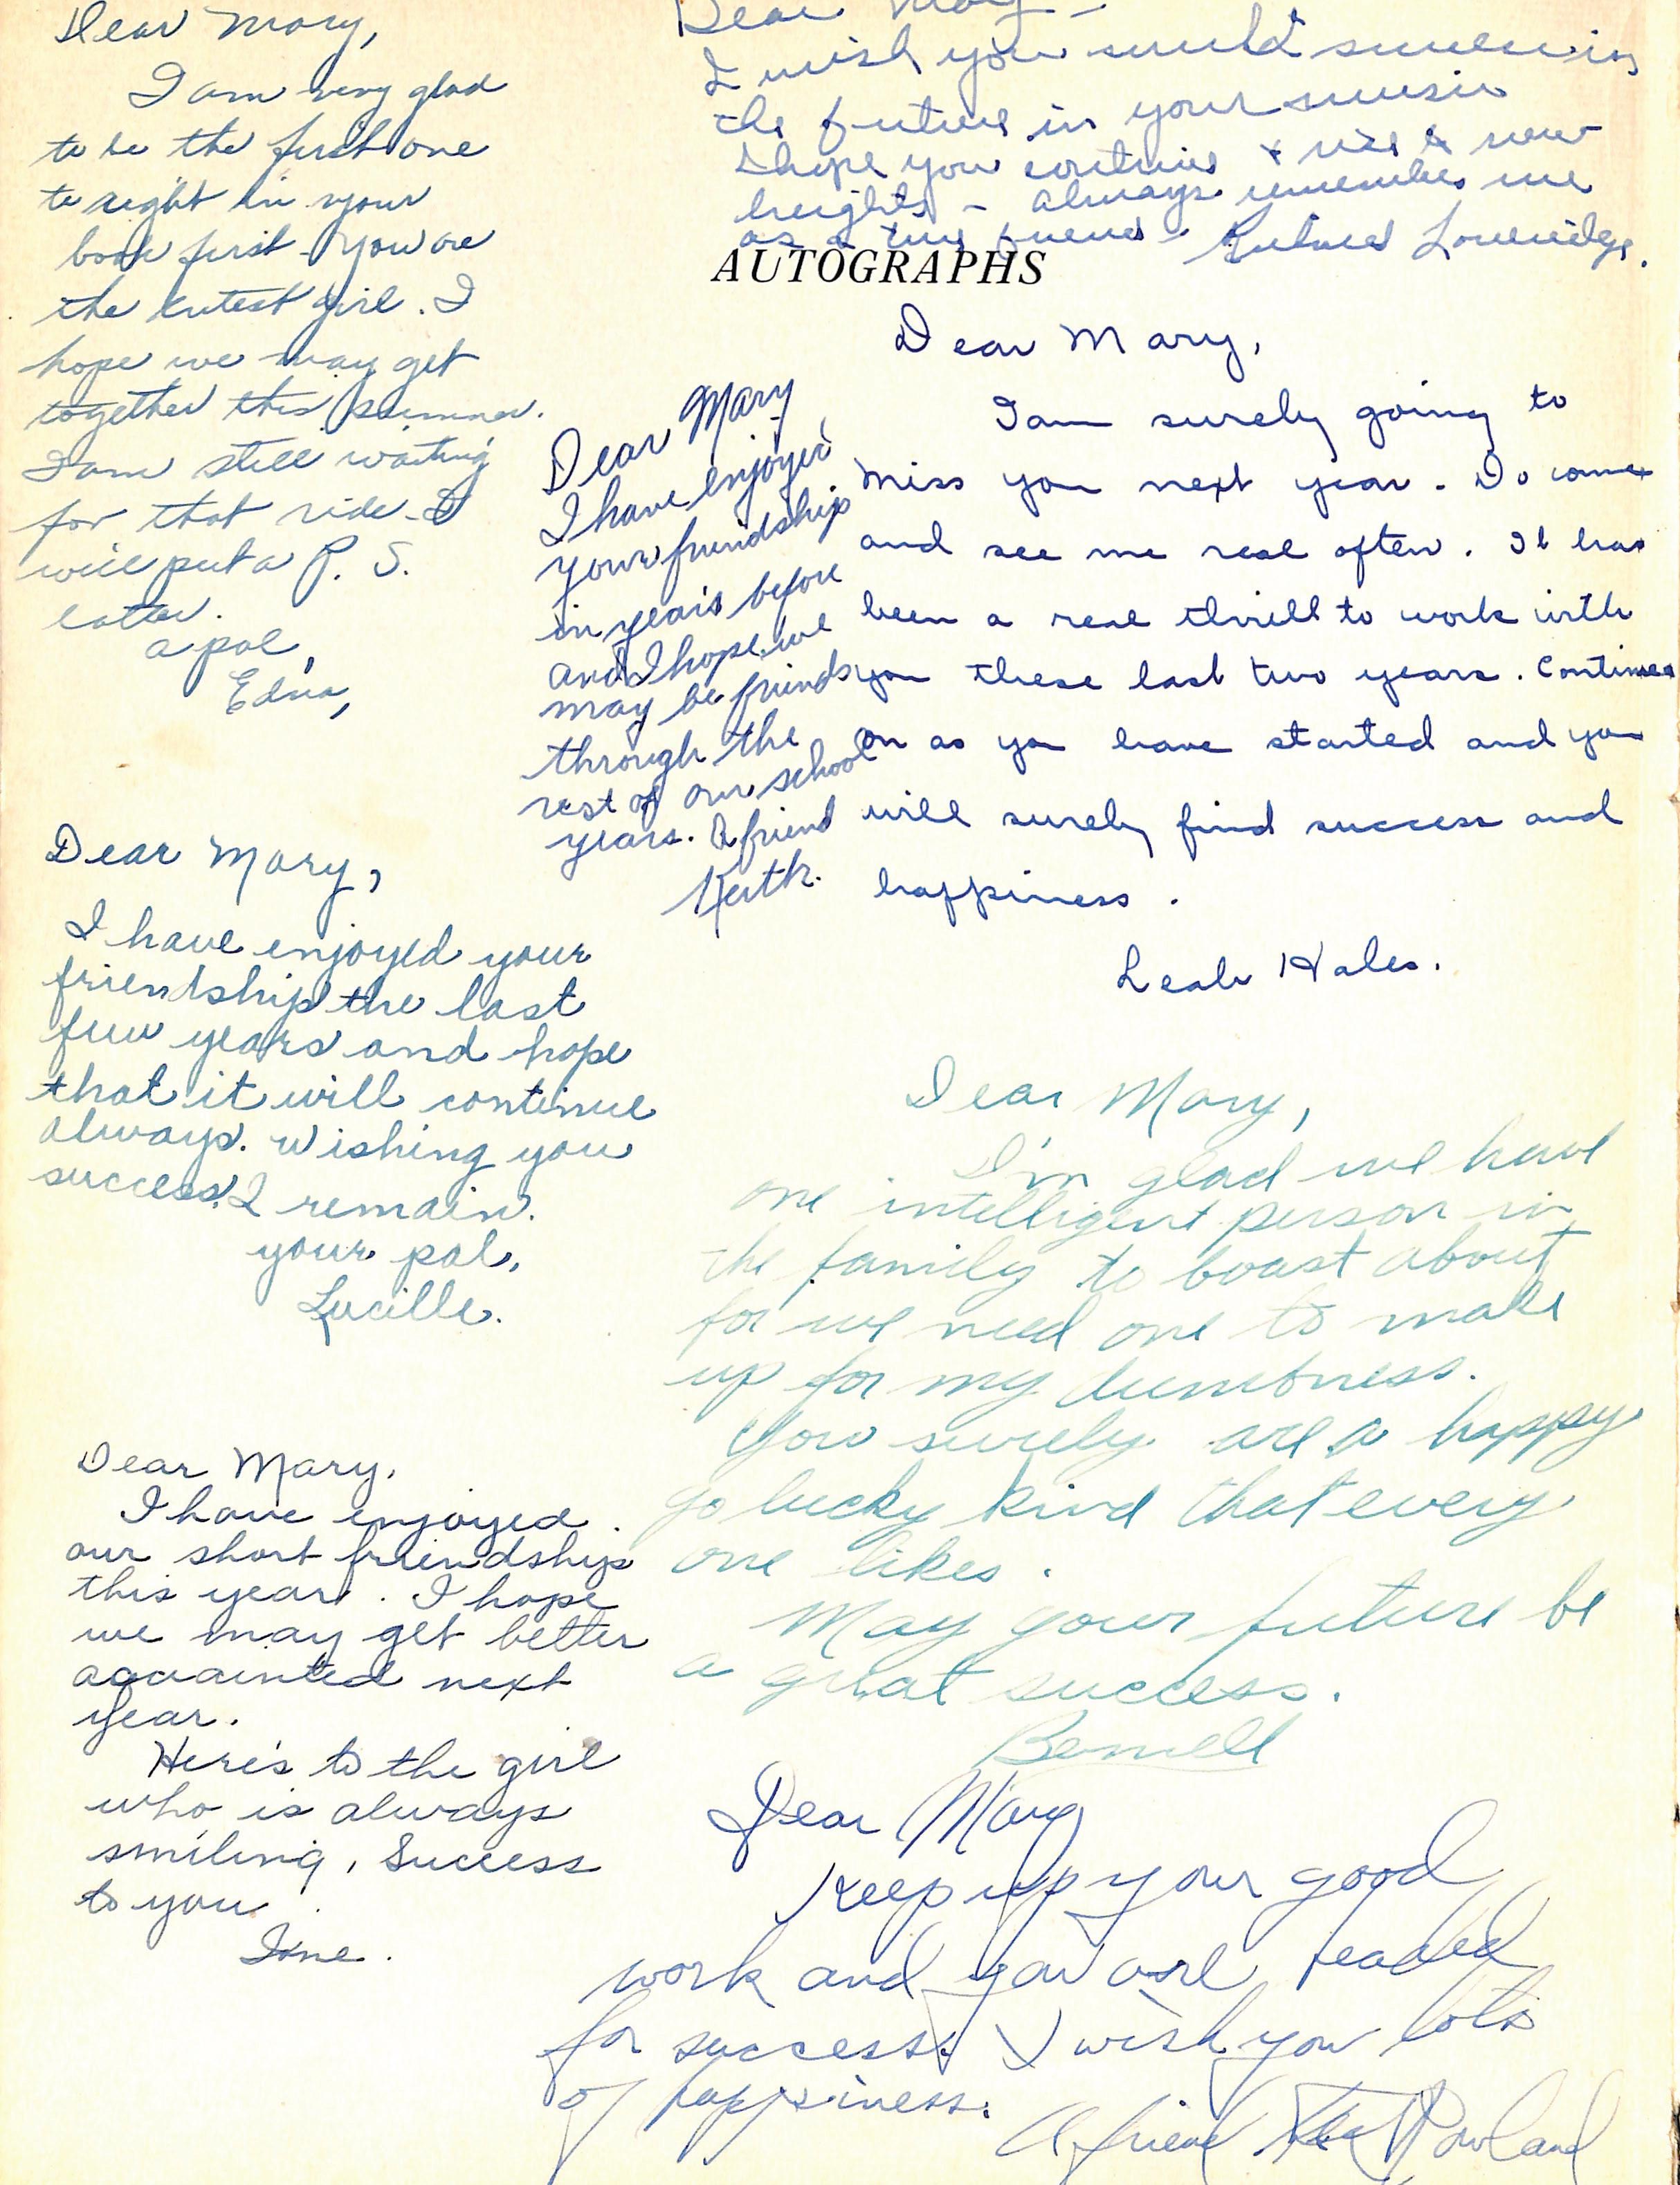 Dear Mary,
I am very glad
to be the first one
to right in your
book first - You are
the cutest girl. I
hope we may get
together this summer.
I am still waiting
for that ride - I
will put a P. S.
later.
a pal,
Edna,
Dear Mary -
I wish you much success in
the future in your music
I hope you continue & rise to new
heights - always remember me
as a true friend -
AUTOGRAPHS
Dear Mary
I have enjoyed
your friendship
in years before
and I hope we
may be friends
through the
rest of our school
years. A friend
Keith.
Dear Mary,
I am surely going to
miss you next year. Do come
and see me real often. It has
been a real thrill to work with
you these last two years. Continue
on as you have started and you
will surely find success and
happiness.
Leah Hales.
Dear Mary,
I have enjoyed your
friendship the last
few years and hope
that it will continue
always. Wishing you
success. I remain.
your pal,
Lucille.
Dear Mary,
I'm glad we have
one intelligent person in
the family to boast about
for we need one to make
up for my dumbness.
You surely are a happy
go lucky kind that every
one likes.
May your future be
a great success.
Dear Mary,
I have enjoyed
our short friendship
this year. I hope
we may get better
acquainted next
year.
Here's to the girl
who is always
smiling, Success
to you
Dear Mary
Keep up your good
work and you are headed
for success. I wish you lots
of happiness.
A friend Rowland